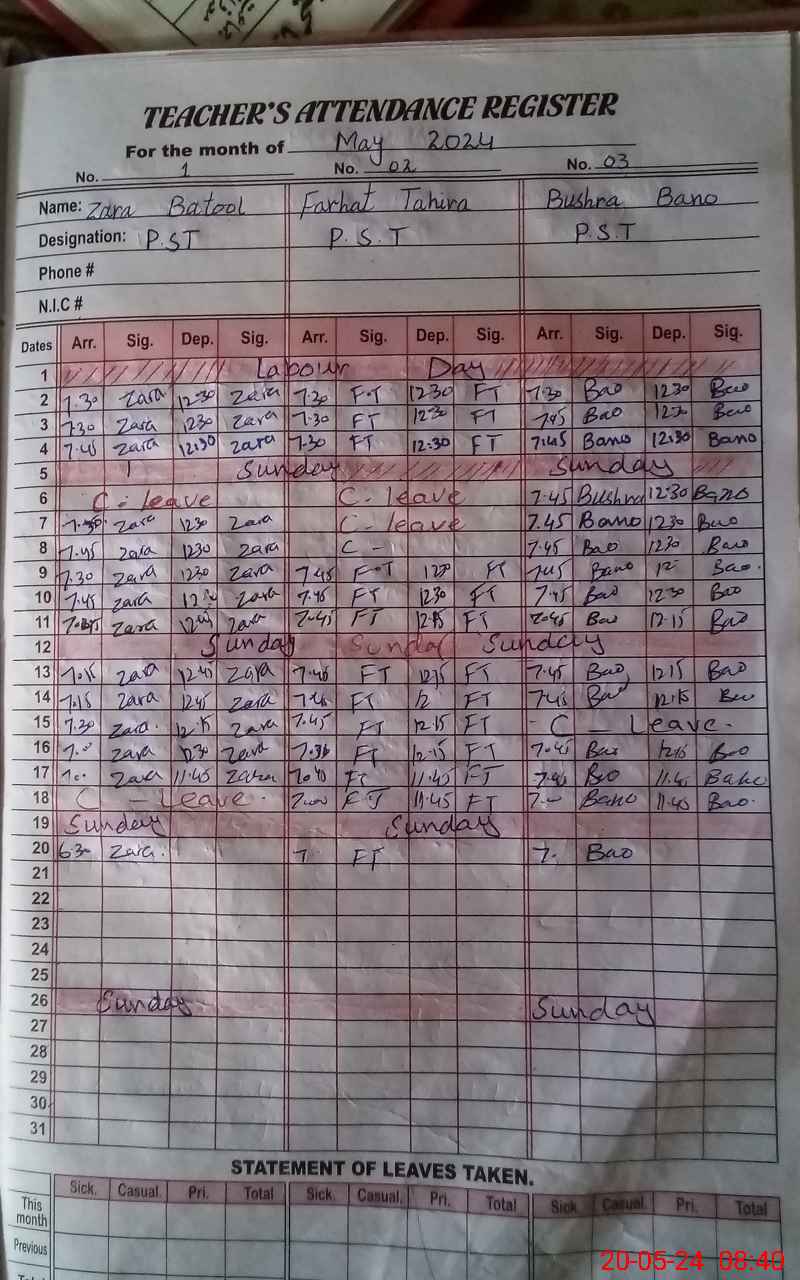 TEACHER'S ATTENDANCE REGISTER
For the month of May 2024
No. 1 No. 02 No. 03
Name: Zara Batool Farhat Tahira Bushra Bano
Designation: P.ST P.S.T P.S.T
Phone #
N.I.C #
Dates Arr. Sig. Dep. Sig. Arr. Sig. Dep. Sig. Arr. Sig. Dep. Sig.
1 Labour Day
2 7.30 Zara 12:30 Zara 7.30 F.T 12:30 FT 7.30 Bao 1230 Bao
3 730 Zara 1230 Zara 7.30 FT 12:30 FT 7.45 Bao Bao
4 7.45 Zara 12:30 Zara 7.30 FT 12:30 FT 7.45 Bano 12:30 Bano
5 Sunday Sunday
6 C - leave C - leave 7.45 Bushra 12:30 Bano
7 7.30 Zara 1230 Zara C - leave 7.45 Bano 1230 Bao
8 7.45 Zara 1230 Zara C - 7.45 Bao 1230 Bao
9 7.30 Zara 1230 Zara 7.45 F.T FT Bano 12 Bao.
10 7.45 Zara Zara 7.45 FT 1230 FT 7.45 Bao 12.30 Bao
11 Zara Zara 7.45 FT 12.15 FT 7.45 Bao 12.15 Bao
12 Sunday Sunday Sunday
13 7.15 Zara 1245 Zara 7.45 FT 12.15 FT 7.45 Bao 12.15 Bao
14 7.15 Zara 1245 Zara FT 12 FT 7.45 Bao 12.15 Bao
15 7.30 Zara. 12.15 Zara 7.45 FT 12.15 FT - C - Leave -
16 7.0 Zara 1230 Zara FT 12.15 FT 7.45 Bao 12.15 Bao
17 Zara 11.45 Zara 7.40 FT 11.45 FT 7.40 Bao 11.45 Bano
18 C - Leave. 7.00 FT 11.45 FT 7. Bano 11.45 Bao.
19 Sunday Sunday
20 6.30 Zara. 7 FT 7. Bao
21
22
23
24
25
26 Sunday Sunday
27
28
29
30
31
STATEMENT OF LEAVES TAKEN.
Sick. Casual. Pri. Total Sick. Casual. Pri. Total Sick. Casual. Pri. Total
This month
Previous
20-05-24 08:40